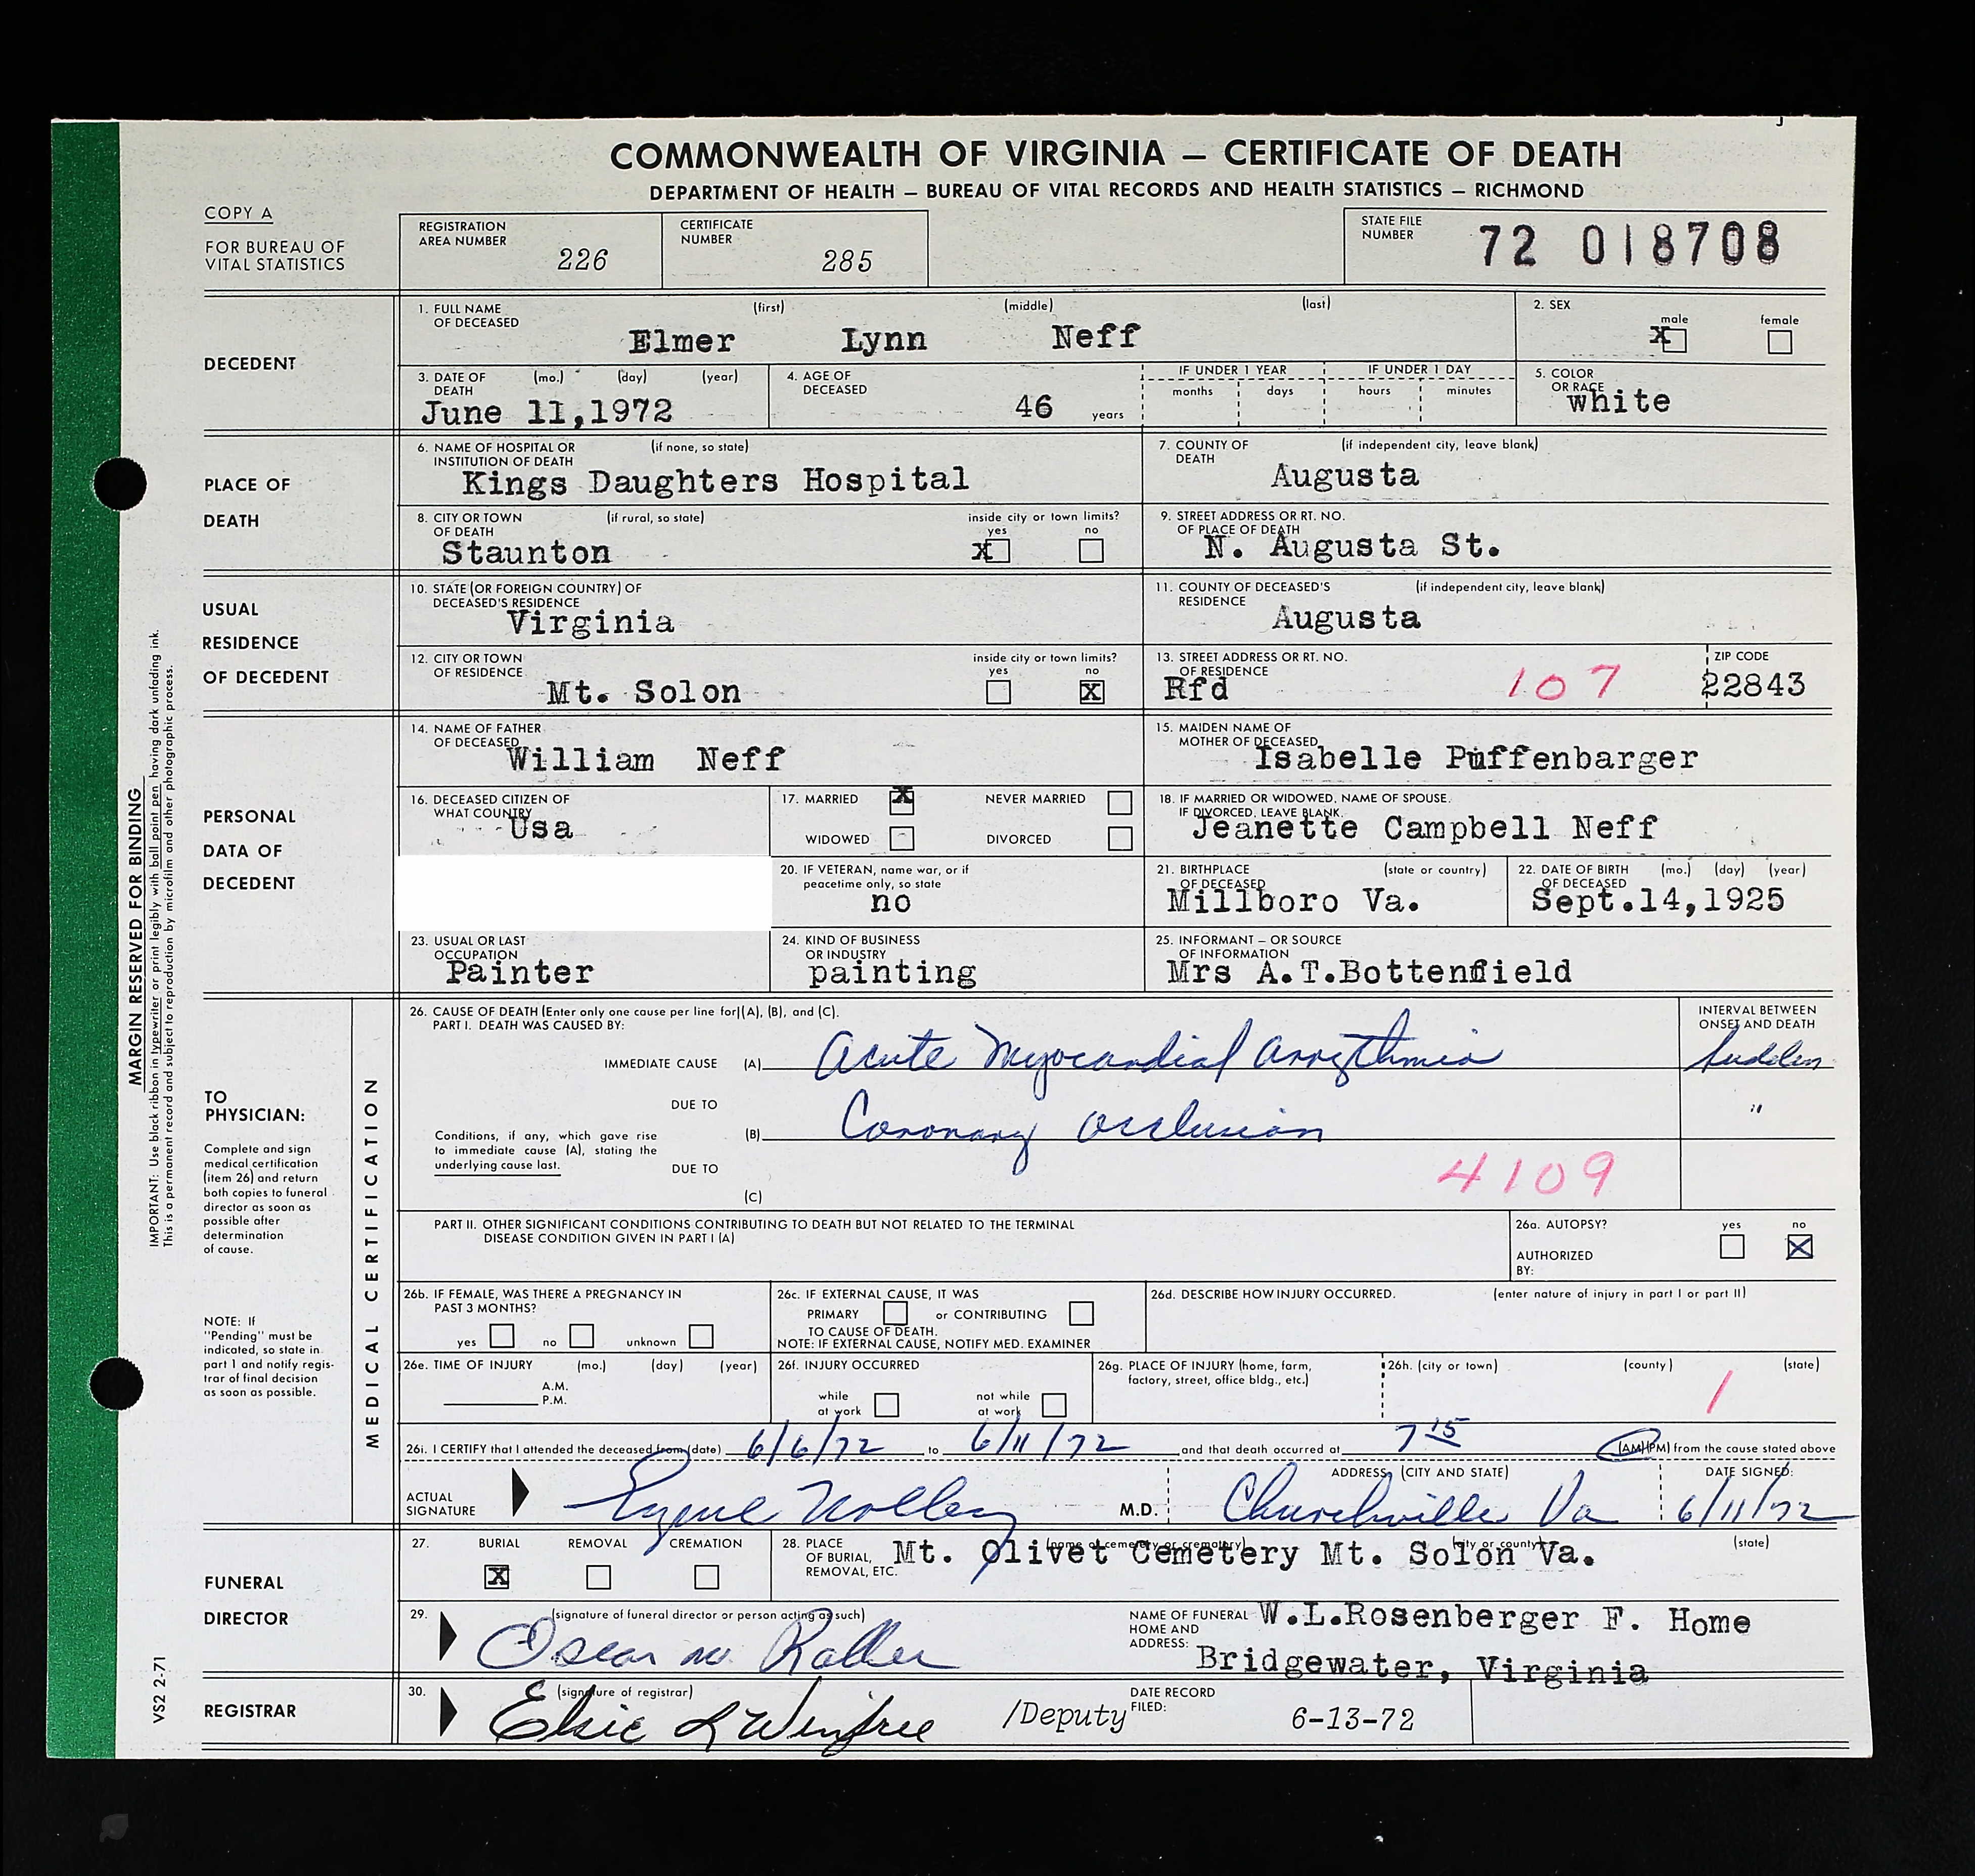 COMMONWEALTH OF VIRGINIA — CERTIFICATE OF DEATH
DEPARTMENT OF HEALTH — BUREAU OF VITAL RECORDS AND HEALTH STATISTICS — RICHMOND
COPY A
FOR BUREAU OF
VITAL STATISTICS
REGISTRATION
AREA NUMBER 226
CERTIFICATE
NUMBER 285
STATE FILE
NUMBER 72 018708
DECEDENT
1. FULL NAME (first) (middle) (last)
OF DECEASED
Elmer Lynn Neff
2. SEX
male female
X
3. DATE OF (mo.) (day) (year)
DEATH
June 11,1972
4. AGE OF
DECEASED
46 years
IF UNDER 1 YEAR IF UNDER 1 DAY
months days hours minutes
5. COLOR
OR RACE
white
PLACE OF
DEATH
6. NAME OF HOSPITAL OR (if none, so state)
INSTITUTION OF DEATH
Kings Daughters Hospital
7. COUNTY OF (if independent city, leave blank)
DEATH
Augusta
8. CITY OR TOWN (if rural, so state)
OF DEATH
Staunton
inside city or town limits?
yes no
X
9. STREET ADDRESS OR RT. NO.
OF PLACE OF DEATH
N. Augusta St.
USUAL
RESIDENCE
OF DECEDENT
10. STATE (OR FOREIGN COUNTRY) OF
DECEASED'S RESIDENCE
Virginia
11. COUNTY OF DECEASED'S (if independent city, leave blank)
RESIDENCE
Augusta
12. CITY OR TOWN
OF RESIDENCE
Mt. Solon
inside city or town limits?
yes no
X
13. STREET ADDRESS OR RT. NO.
OF RESIDENCE
Rfd 107
ZIP CODE
22843
PERSONAL
DATA OF
DECEDENT
14. NAME OF FATHER
OF DECEASED
William Neff
15. MAIDEN NAME OF
MOTHER OF DECEASED
Isabelle Puffenbarger
16. DECEASED CITIZEN OF
WHAT COUNTRY
Usa
17. MARRIED X NEVER MARRIED
WIDOWED DIVORCED
18. IF MARRIED OR WIDOWED, NAME OF SPOUSE.
IF DIVORCED, LEAVE BLANK.
Jeanette Campbell Neff
20. IF VETERAN, name war, or if
peacetime only, so state
no
21. BIRTHPLACE (state or country)
OF DECEASED
Millboro Va.
22. DATE OF BIRTH (mo.) (day) (year)
OF DECEASED
Sept.14,1925
23. USUAL OR LAST
OCCUPATION
Painter
24. KIND OF BUSINESS
OR INDUSTRY
painting
25. INFORMANT — OR SOURCE
OF INFORMATION
Mrs A.T.Bottenfield
TO
PHYSICIAN:
Complete and sign
medical certification
(item 26) and return
both copies to funeral
director as soon as
possible after
determination
of cause.
NOTE: If
"Pending" must be
indicated, so state in
part 1 and notify regis-
trar of final decision
as soon as possible.
MEDICAL CERTIFICATION
26. CAUSE OF DEATH (Enter only one cause per line for (A), (B), and (C).
PART I. DEATH WAS CAUSED BY:
INTERVAL BETWEEN
ONSET AND DEATH
IMMEDIATE CAUSE (A) Acute Myocardial Arrythmia Sudden
DUE TO
(B) Coronary Occlusion "
Conditions, if any, which gave rise
to immediate cause (A), stating the
underlying cause last.
DUE TO
(C)
4109
PART II. OTHER SIGNIFICANT CONDITIONS CONTRIBUTING TO DEATH BUT NOT RELATED TO THE TERMINAL
DISEASE CONDITION GIVEN IN PART I (A)
26a. AUTOPSY? yes no
X
AUTHORIZED
BY:
26b. IF FEMALE, WAS THERE A PREGNANCY IN
PAST 3 MONTHS?
yes no unknown
26c. IF EXTERNAL CAUSE, IT WAS
PRIMARY or CONTRIBUTING
TO CAUSE OF DEATH.
NOTE: IF EXTERNAL CAUSE, NOTIFY MED. EXAMINER
26d. DESCRIBE HOW INJURY OCCURRED. (enter nature of injury in part I or part II)
26e. TIME OF INJURY (mo.) (day) (year)
A.M.
P.M.
26f. INJURY OCCURRED
while
at work
not while
at work
26g. PLACE OF INJURY (home, farm,
factory, street, office bldg., etc.)
26h. (city or town) (county) (state)
1
26i. I CERTIFY that I attended the deceased from (date) 6/6/72 to 6/11/72 and that death occurred at 7 15 (AM) (PM) from the cause stated above
ACTUAL
SIGNATURE
M.D.
ADDRESS (CITY AND STATE)
Churchville Va
DATE SIGNED:
6/11/72
FUNERAL
DIRECTOR
27. BURIAL REMOVAL CREMATION
X
28. PLACE
OF BURIAL,
REMOVAL, ETC.
(name of cemetery or crematory) (city or county) (state)
Mt. Olivet Cemetery Mt. Solon Va.
29. (signature of funeral director or person acting as such)
Oscar W.
NAME OF FUNERAL
HOME AND
ADDRESS:
W.L.Rosenberger F. Home
Bridgewater, Virginia
REGISTRAR
30. (signature of registrar)
Elsie L Winfree /Deputy
DATE RECORD
FILED:
6-13-72
MARGIN RESERVED FOR BINDING
IMPORTANT: Use black ribbon in typewriter or print legibly with ball point pen having dark unfading ink.
This is a permanent record and subject to reproduction by microfilm and other photographic process.
VS2 2-71